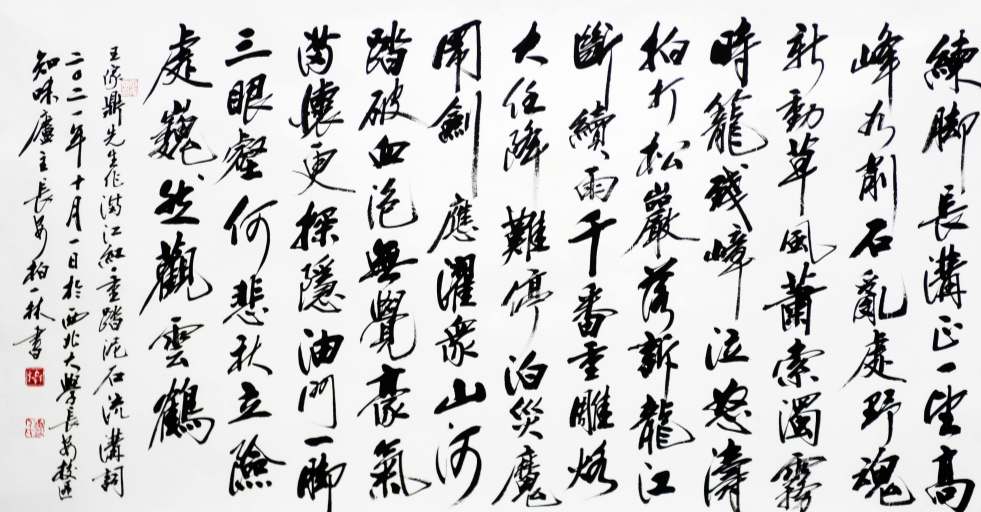 練脚長溝正一望高
峰削石亂處野魂
新動草風蕭索濁霧
時籠殘嶂泣怒濤
拍打松巖落訴龍江
斷續雨千番重雕烙
大任降難停泊災魔
開劍應濯衆山河
踏破血泡無覺豪氣
滿轅更探隱油門一脚
三眼壑何悲秋立險
處巍然觀雲鶴
王家鼎先生作滿江紅重踏泥石流溝詞
二〇二一年十月一日於西北大學長安校區
知味廬主長安柏一林書